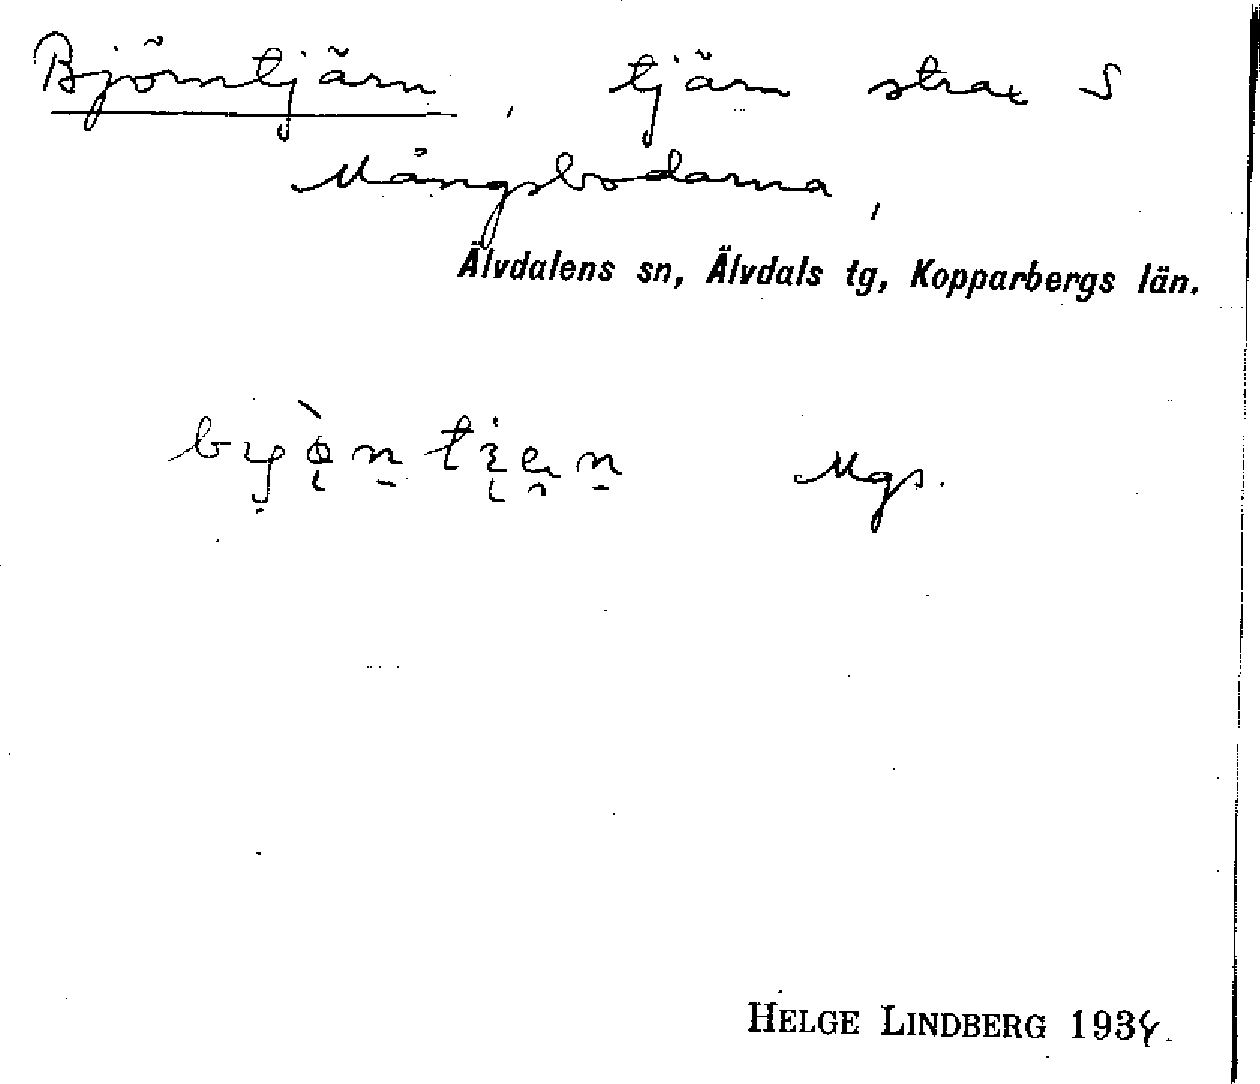 Björntjärn, tjärn strax S
Mångsbodarna,
Älvdalens sn, Älvdals tg, Kopparbergs län.
Mgs.
HELGE LINDBERG 1934.